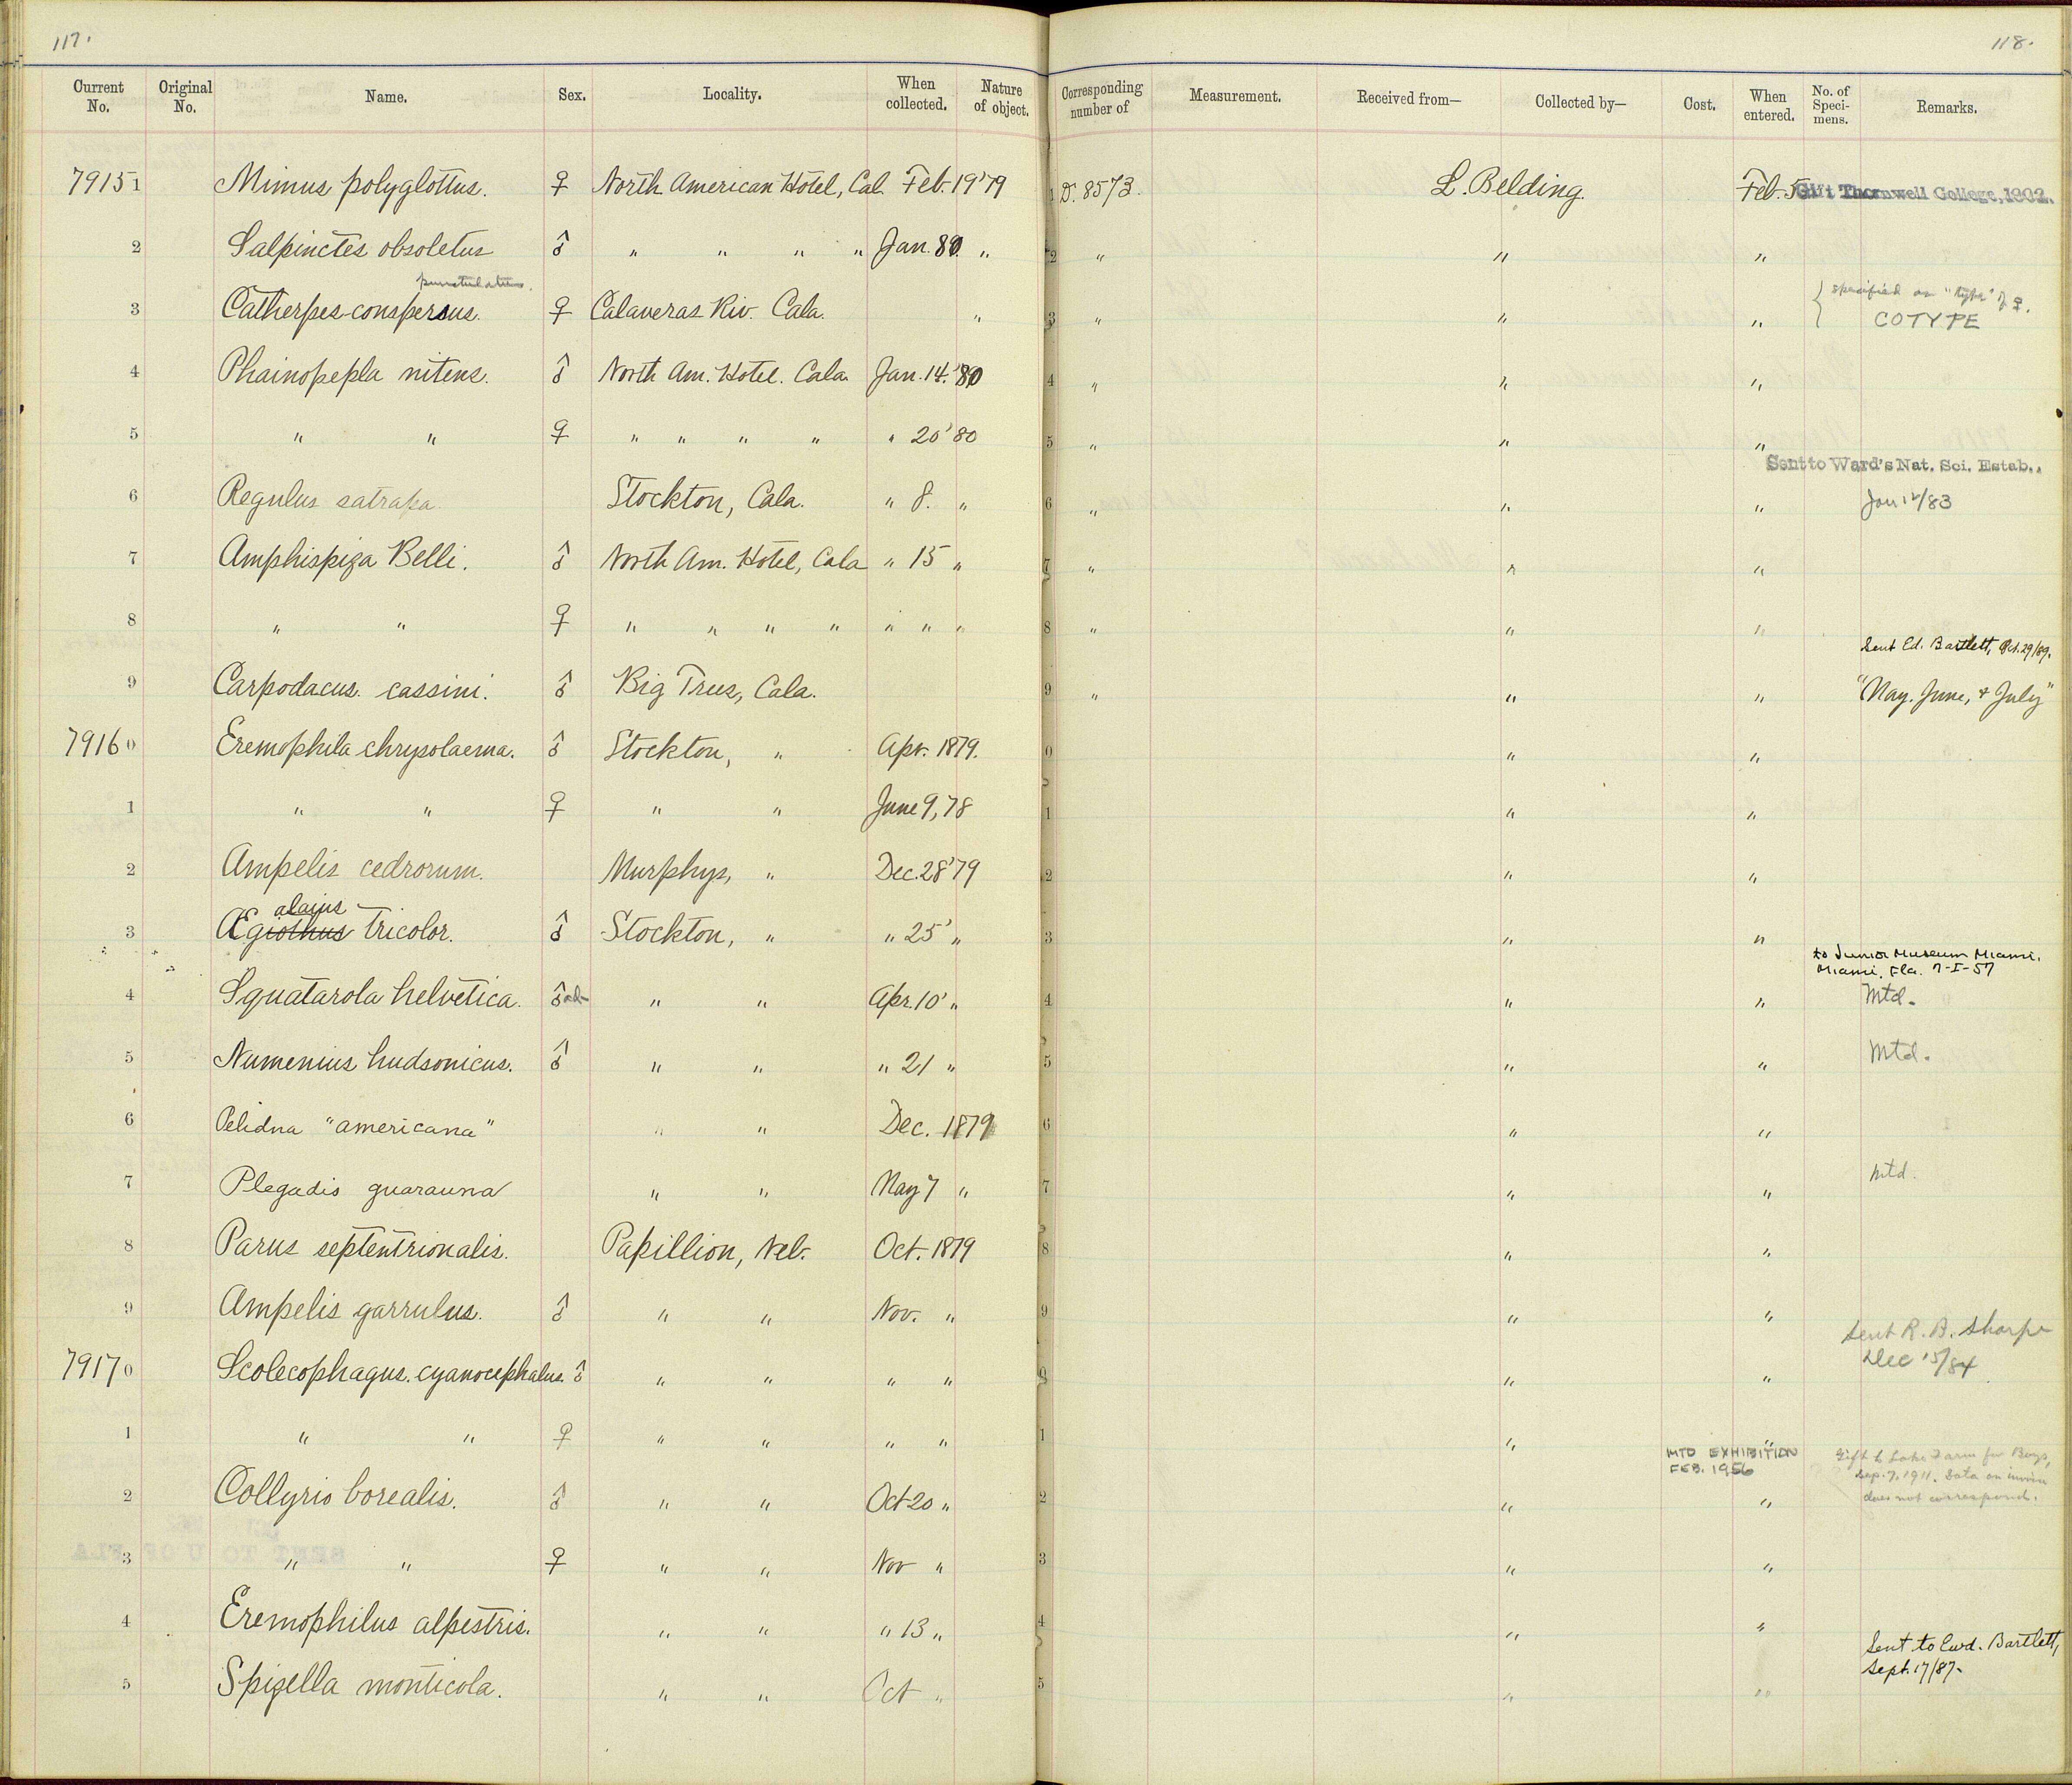 117.
118.
Current No. Original No. Name. Sex. Locality. When collected. Nature of object. Corresponding number of Measurement. Received from— Collected by— Cost. When entered. No. of Speci- mens. Remarks.
79151 Mimus polyglottus. ♀ North American Hotel, Cal. Feb. 19'79 1 D. 8573. L. Belding. Feb. 5 Gift Thornwell College, 1902.
2 Salpinctes obsoletus ♂ " " " " Jan. 80. " 2 " " "
punctulatus.
3 Catherpes conspersus. ♀ Calaveras Riv. Cala. " 3 " " " { specified as "type" of ♀.
COTYPE
4 Phainopepla nitens. ♂ North Am. Hotel. Cala. Jan. 14. '80 4 " " "
5 " " ♀ " " " " " 20'80 5 " " "
Sent to Ward's Nat. Sci. Estab.,
6 Regulus satrapa Stockton, Cala. " 8. " 6 " " " Jan 12/83
7 Amphispiza Belli. ♂ North Am. Hotel, Cala " 15 " 7 " " "
8 " " ♀ " " " " " " " 8 " " "
Sent Ed. Bartlett, Oct. 29/89.
9 Carpodacus. cassini. ♂ Big Trees, Cala. 9 " " " "May. June, & July"
79160 Eremophila chrysolaema. ♂ Stockton, " Apr. 1879. 0 " "
1 " " ♀ " " June 9, 78 1 " "
2 Ampelis cedrorum. Murphys, " Dec. 28'79 2 " "
alaius
3 Ægiothus tricolor. ♂ Stockton, " " 25' " 3 " "
to Junior Museum Miami,
Miami, Fla. 7-I-57
4 Squatarola helvetica. ♂ad- " " Apr. 10' " 4 " " Mtd.
5 Numenius hudsonicus. ♂ " " " 21 " 5 " " Mtd.
6 Pelidna "americana" " " Dec. 1879 6 " "
7 Plegadis guarauna " " May 7 " 7 " " Mtd.
8 Parus septentrionalis. Papillion, Neb. Oct. 1879 8 " "
9 Ampelis garrulus. ♂ " " Nov. " 9 " "
Sent R. B. Sharpe
Dec 15/84
79170 Scolecophagus. cyanocephalus. ♂ " " " " 0 " "
1 " " ♀ " " " " 1 " "
MTD EXHIBITION
FEB. 1956
Gift to Lake Farm for Boys,
Sep. 7, 1911. Data on invoice
does not correspond.
2 Collyrio borealis. ♂ " " Oct 20 " 2 " "
3 " " ♀ " " Nov " 3 " "
4 Eremophilus alpestris. " " " 13 " 4 " "
Sent to Ewd. Bartlett,
Sept. 17/87.
5 Spizella monticola. " " Oct " 5 " "